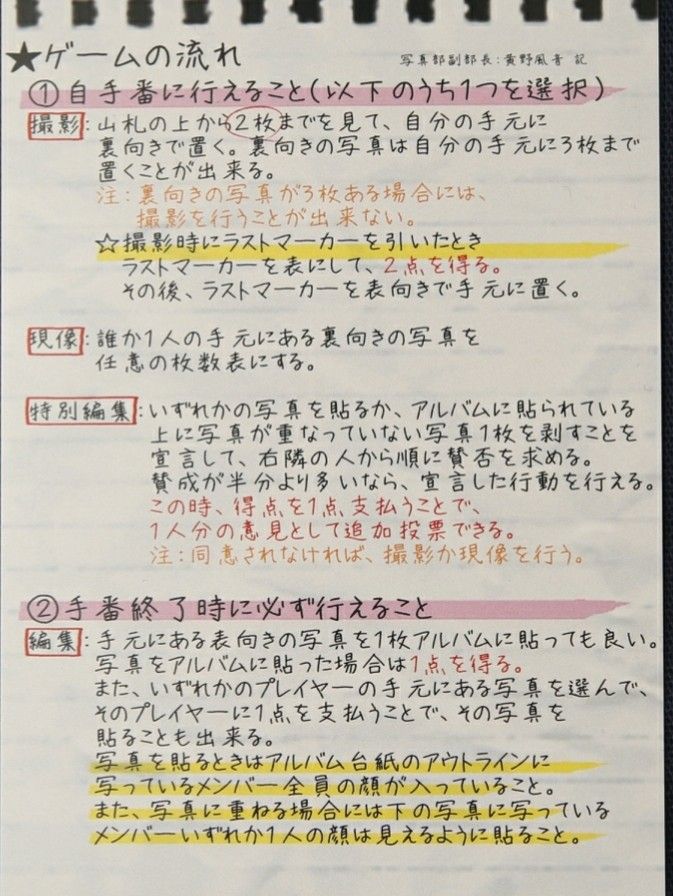 ★ゲームの流れ
写真部副部長:黄野風音 記
①自手番に行えること(以下のうち1つを選択)
撮影:山札の上から2枚までを見て、自分の手元に
裏向きで置く。裏向きの写真は自分の手元に3枚まで
置くことが出来る。
注:裏向きの写真が3枚ある場合には、
撮影を行うことが出来ない。
☆撮影時にラストマーカーを引いたとき
ラストマーカーを表にして、2点を得る。
その後、ラストマーカーを表向きで手元に置く。
現像:誰か1人の手元にある裏向きの写真を
任意の枚数表にする。
特別編集:いずれかの写真を貼るか、アルバムに貼られている
上に写真が重なっていない写真1枚を剥すことを
宣言して、右隣の人から順に賛否を求める。
賛成が半分より多いなら、宣言した行動を行える。
この時、得点を1点支払うことで、
1人分の意見として追加投票できる。
注:同意されなければ、撮影か現像を行う。
②手番終了時に必ず行えること
編集:手元にある表向きの写真を1枚アルバムに貼っても良い。
写真をアルバムに貼った場合は1点を得る。
また、いずれかのプレイヤーの手元にある写真を選んで、
そのプレイヤーに1点を支払うことで、その写真を
貼ることも出来る。
写真を貼るときはアルバム台紙のアウトラインに
写っているメンバー全員の顔が入っていること。
また、写真に重ねる場合には下の写真に写っている
メンバーいずれか1人の顔は見えるように貼ること。